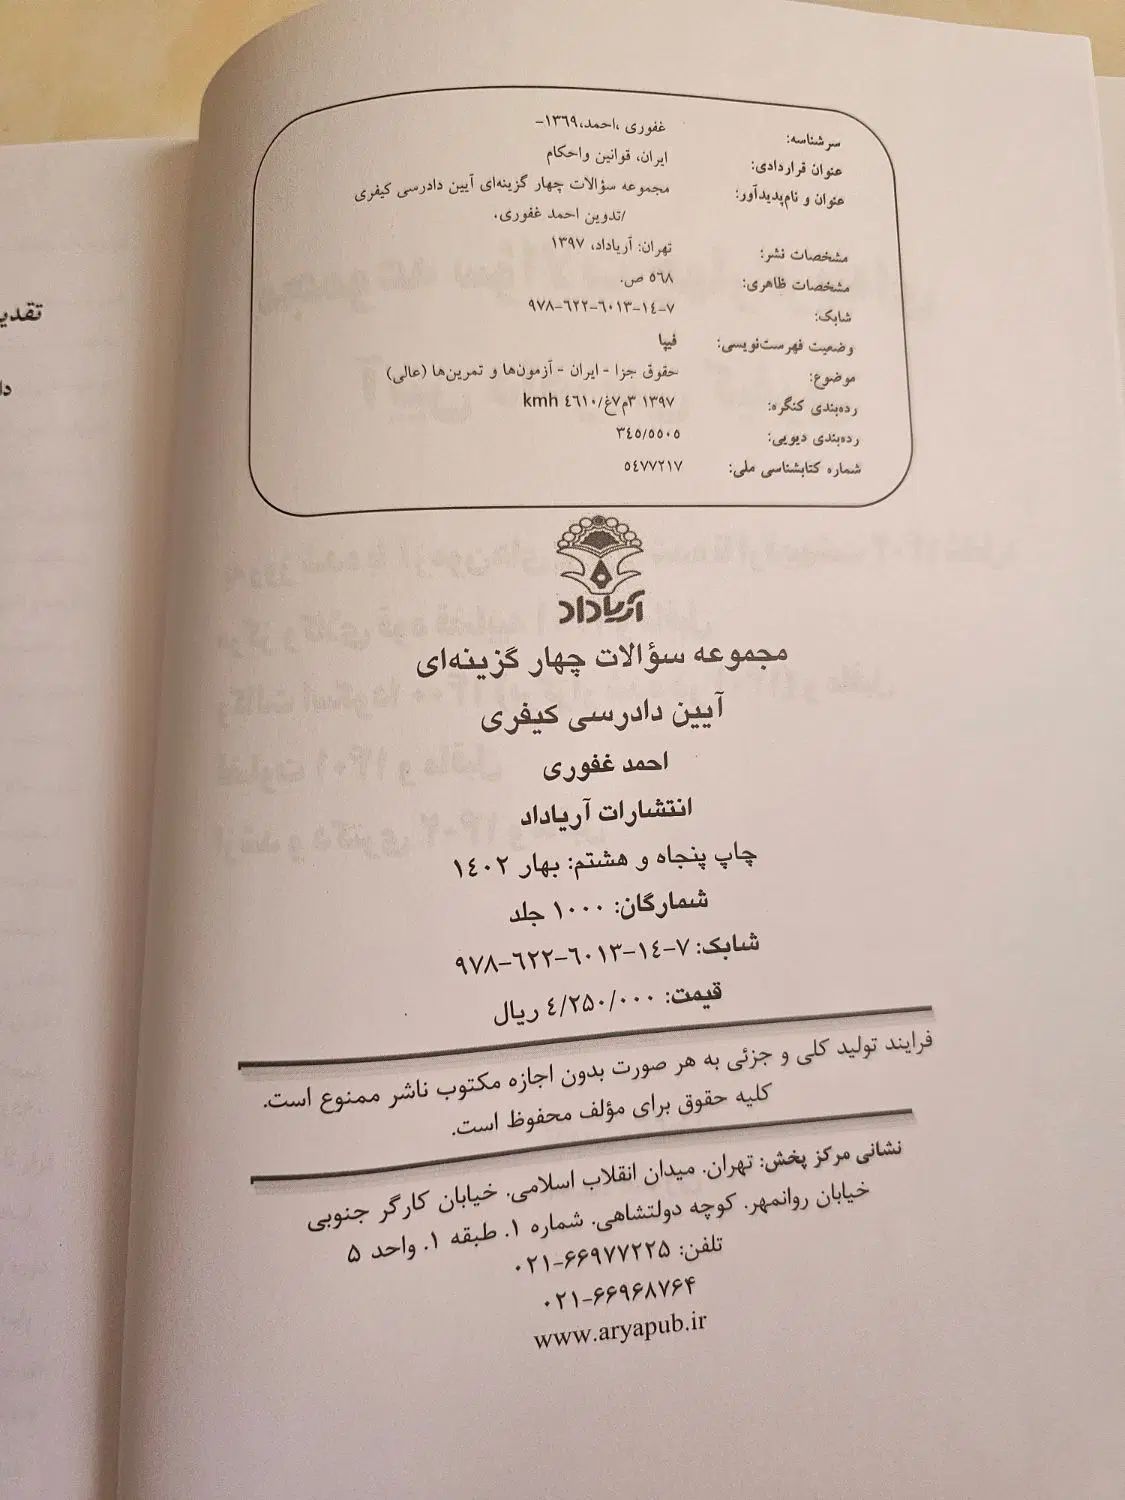 سرشناسه: غفوری ،احمد،۱۳۶۹-
عنوان قراردادی: ایران، قوانین واحکام
عنوان و نام‌پدیدآور: مجموعه سؤالات چهار گزینه‌ای آیین دادرسی کیفری
/تدوین احمد غفوری.
مشخصات نشر: تهران: آریاداد، ۱۳۹۷
مشخصات ظاهری: ۵۶۸ ص.
شابک: ۹۷۸-۶۲۲-۶۰۱۳-۱۴-۷
وضعیت فهرست‌نویسی: فیپا
موضوع: حقوق جزا - ایران - آزمون‌ها و تمرین‌ها (عالی)
رده‌بندی کنگره: ۱۳۹۷ ۳م۷غ/kmh ٤٦١٠
رده‌بندی دیویی: ۳٤۵/۵۵۰۵
شماره کتابشناسی ملی: ۵٤۷۷۲۱۷
آریاداد
مجموعه سؤالات چهار گزینه‌ای
آیین دادرسی کیفری
احمد غفوری
انتشارات آریاداد
چاپ پنجاه و هشتم: بهار ۱٤۰۲
شمارگان: ۱۰۰۰ جلد
شابک: ۷-۱٤-۶۰۱۳-۶۲۲-۹۷۸
قیمت: ٤/۲۵۰/۰۰۰ ریال
فرایند تولید کلی و جزئی به هر صورت بدون اجازه مکتوب ناشر ممنوع است.
کلیه حقوق برای مؤلف محفوظ است.
نشانی مرکز پخش: تهران. میدان انقلاب اسلامی. خیابان کارگر جنوبی
خیابان روانمهر. کوچه دولتشاهی. شماره ۱. طبقه ۱. واحد ۵
تلفن: ۰۲۱-۶۶۹۷۷۲۲۵
۰۲۱-۶۶۹۶۸۷۶۴
www.aryapub.ir